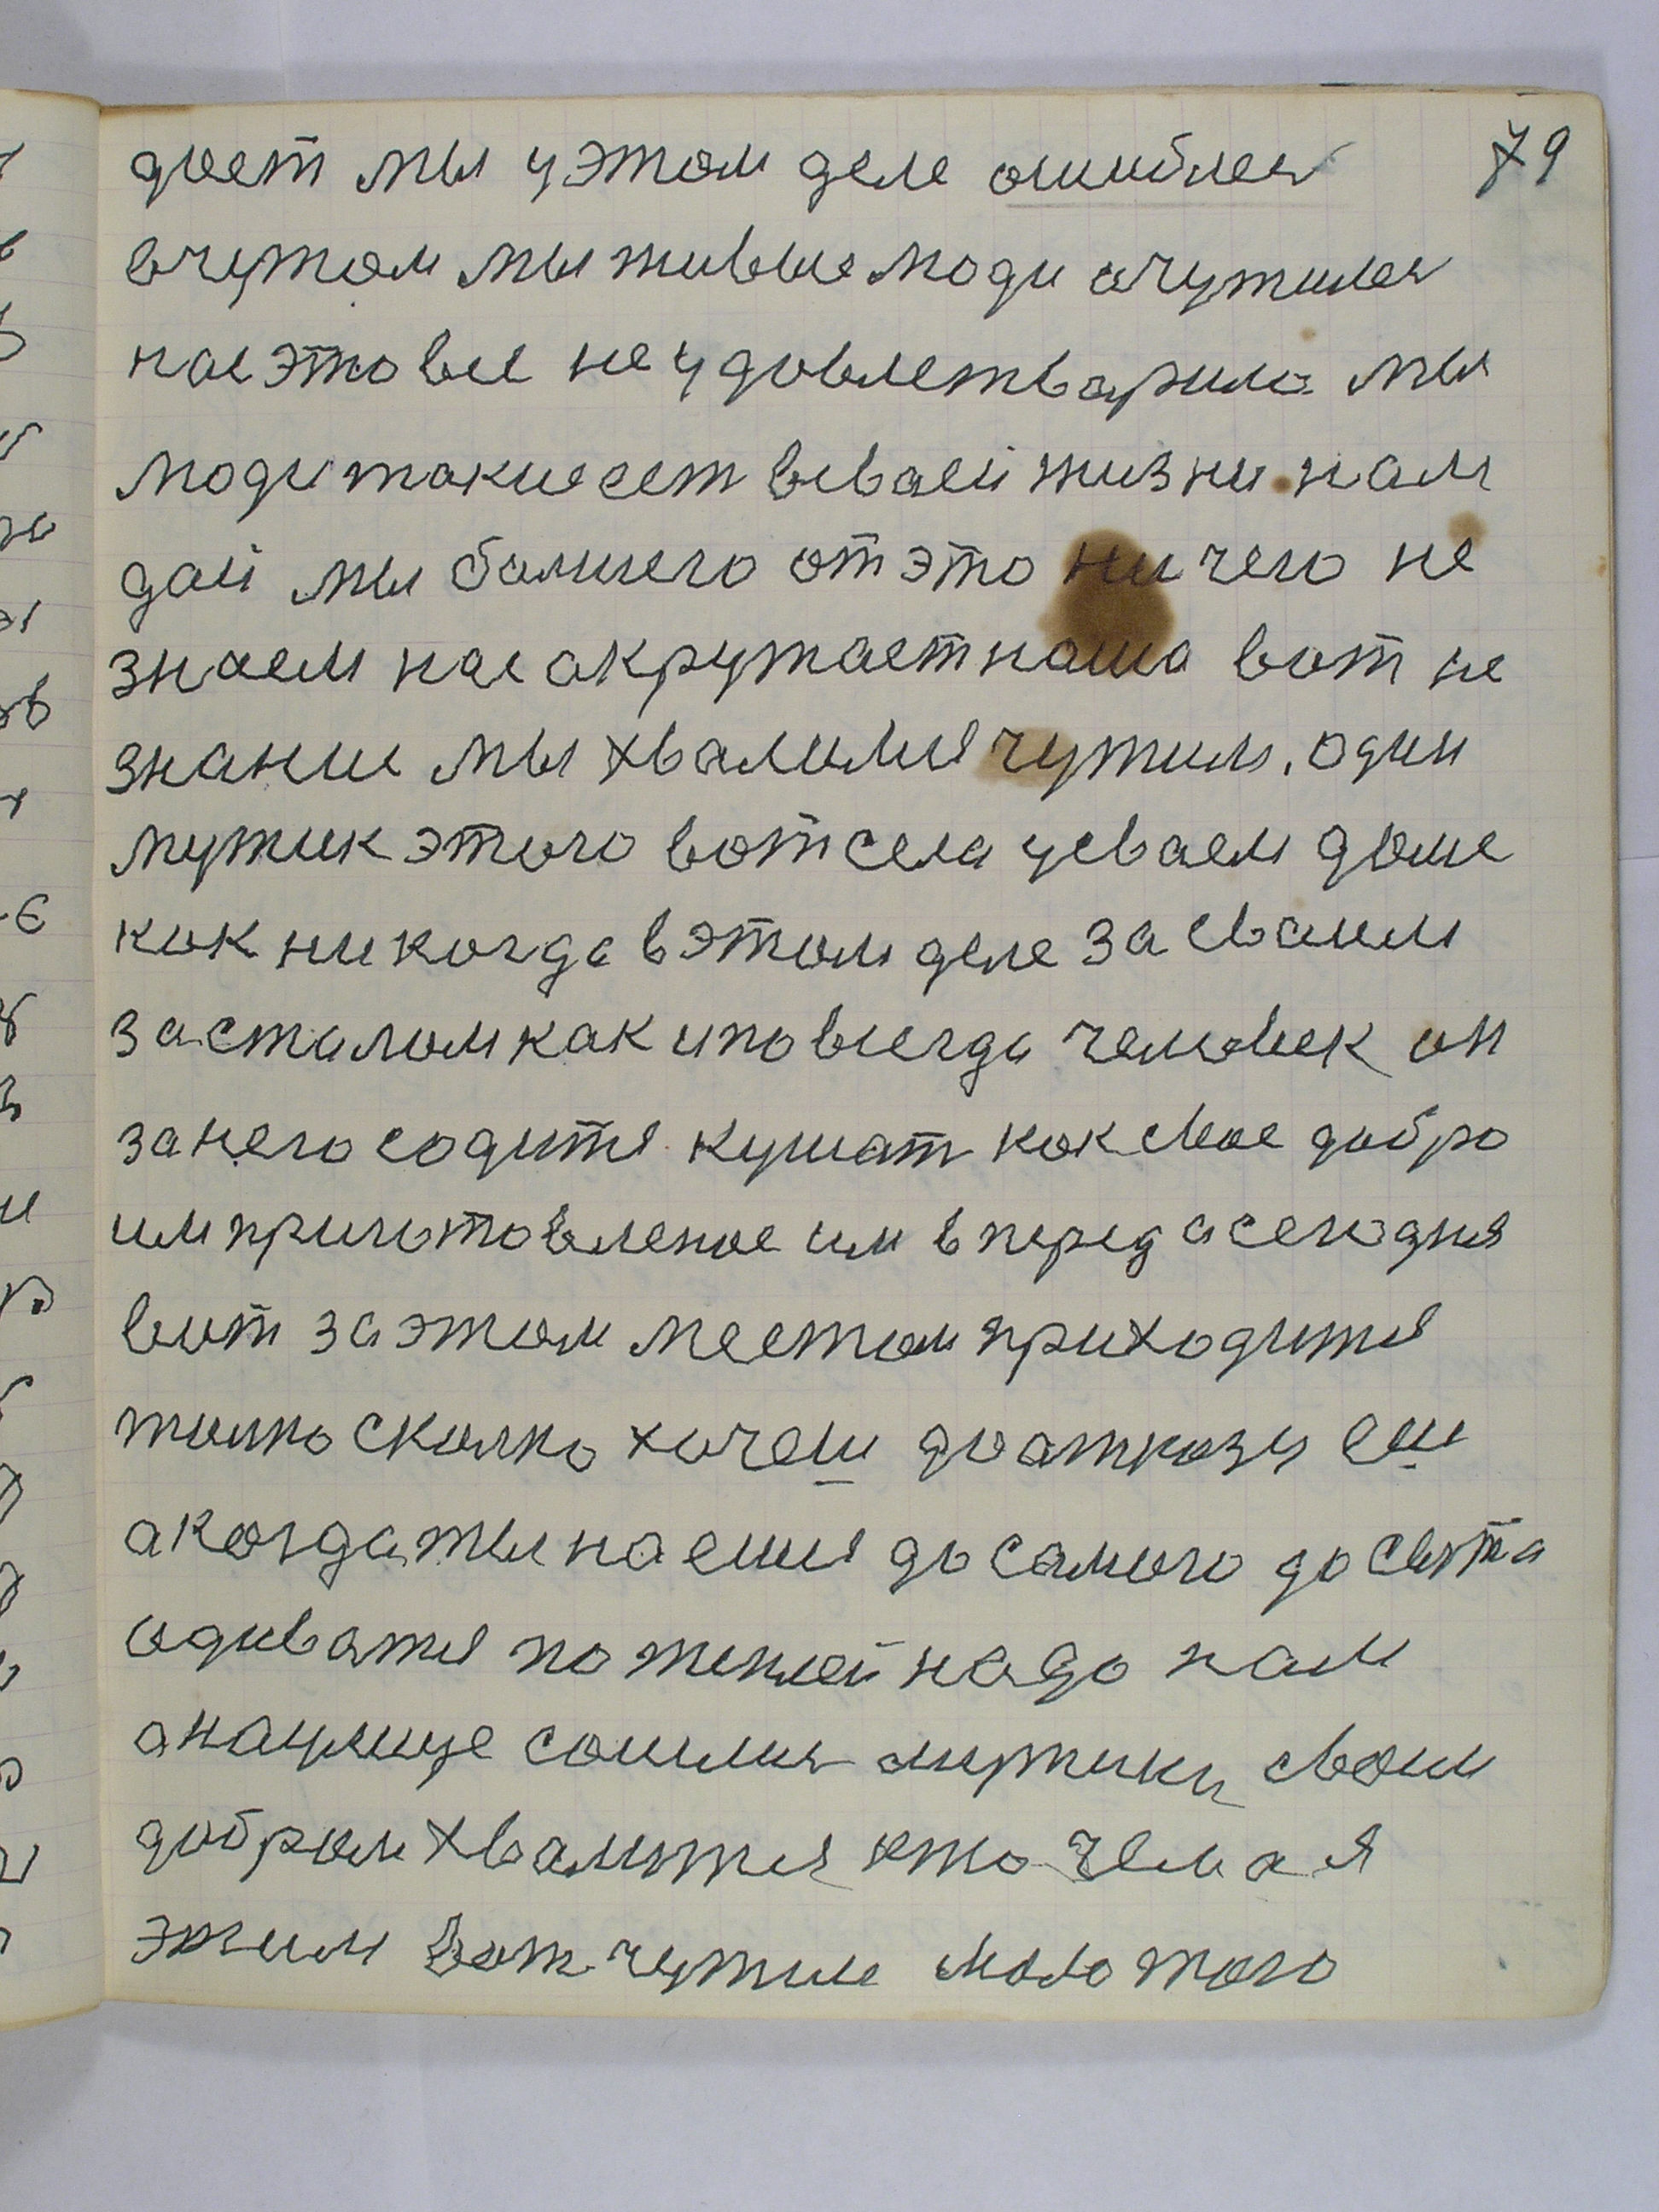 79
дает мы у этом деле ошиблись
вчужом мы живые люди очутились
нас это все не удовлетварила мы
люди такие сет всваей жизни нам
дай мы болшего от это ни чего не
знаем нас акружает наша вот не
знание мы хвалимся чужим. один
мужик этого вот села усваем доме
как ни когда в этом деле за сваим
за сталом как и по всегда человек он
за него содится кушат как свое добро
им приготовленое им в перед а сегодня
вот за этом местом приходится
толко сколко хочеш до атказу еш
а когда ты наешся до самого до сыта
одиватся по теплей надо нам
а на улице сошлись мужики своим
добром хвалится кто чем а я
этим вот чужим мало того